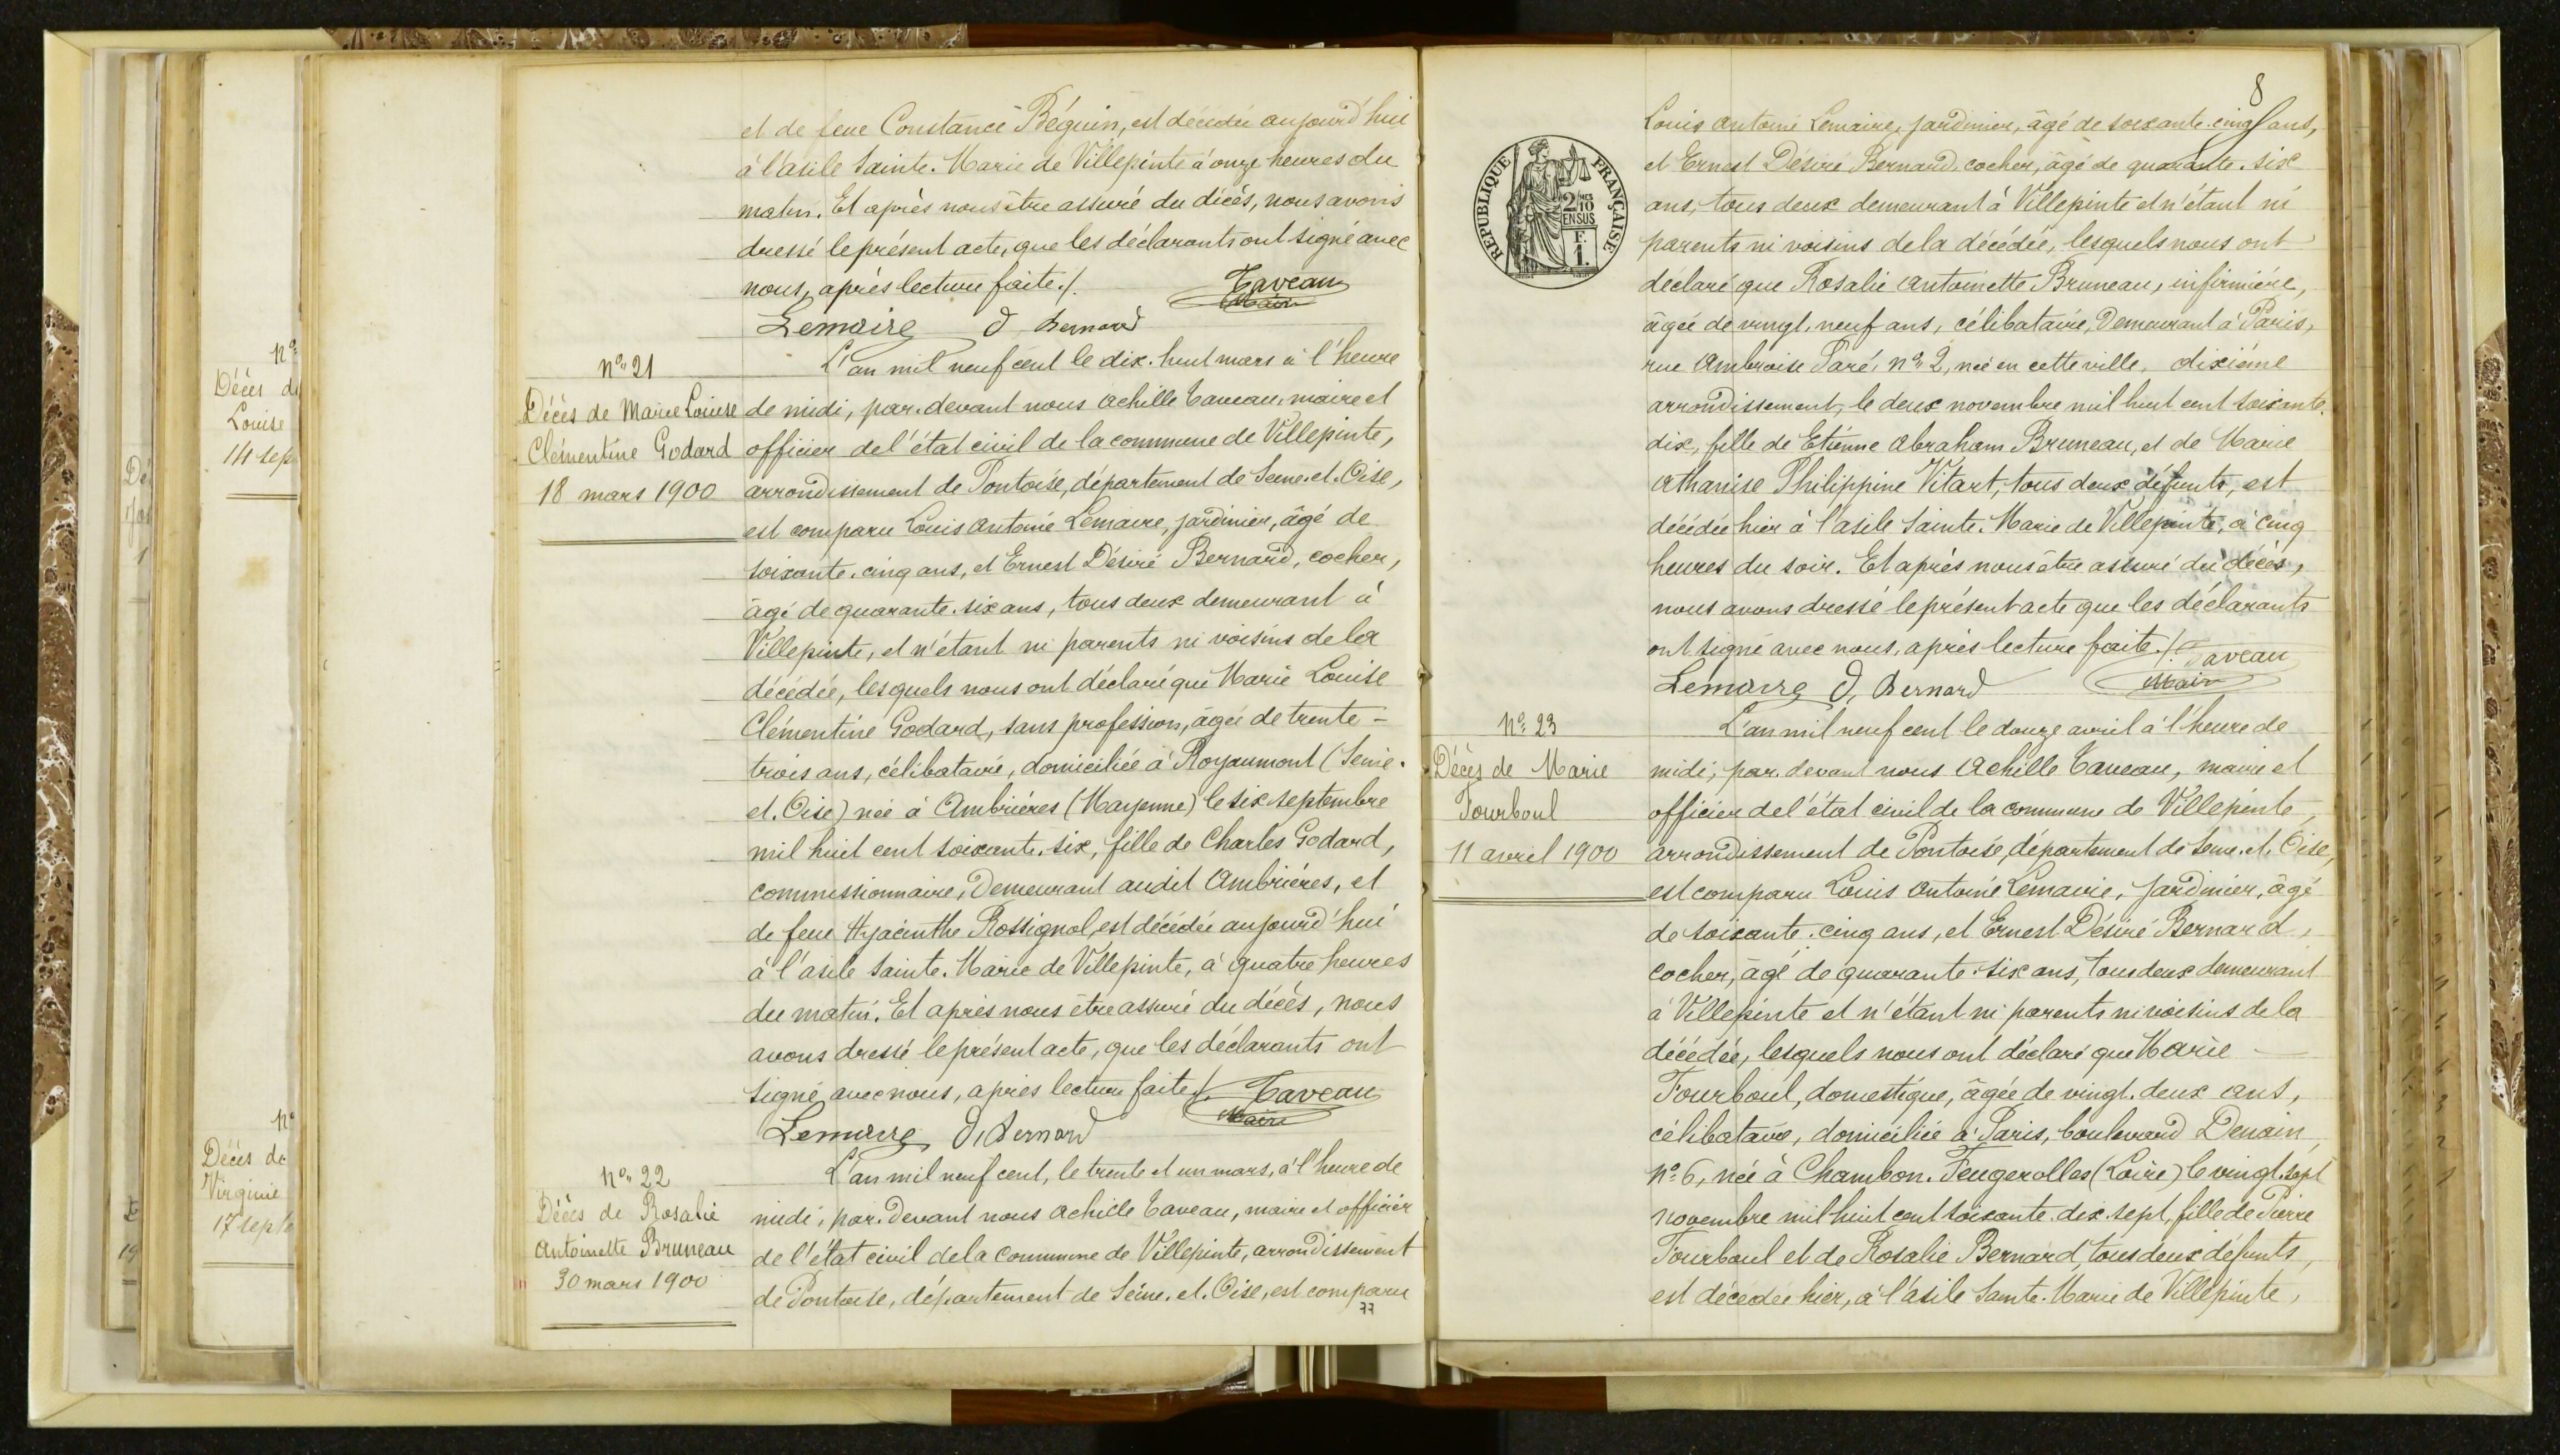 et de feue Constance Béguin, est décédée aujourd'hui
à l'asile Sainte. Marie de Villepinte à onze heures du
matin. Et après nous être assuré du décès, nous avons
dressé le présent acte, que les déclarants ont signé avec
nous, après lecture faite./.
Taveau
Maire
Lemaire D Bernard
n° 21
Décès de Marie Louise
Clémentine Godard
18 mars 1900
L'an mil neuf cent le dix. huit mars à l'heure
de midi, par. devant nous Achille Taveau, maire et
officier de l'état civil de la commune de Villepinte,
arrondissement de Pontoise, département de Seine. et. Oise,
est comparu Louis Antoine Lemaire, jardinier, âgé de
soixante. cinq ans, et Ernest Désiré Bernard, cocher,
âgé de quarante. six ans, tous deux demeurant à
Villepinte, et n'étant ni parents ni voisins de la
décédée, lesquels nous ont déclaré que Marie Louise
Clémentine Godard, sans profession, âgée de trente-
trois ans, célibataire, domiciliée à Royaumont (Seine.
et. Oise) née à Ambrières (Mayenne) le six septembre
mil huit cent soixante. six, fille de Charles Godard,
commissionnaire, demeurant audit Ambrières, et
de feue Hyacinthe Rossignol, est décédée aujourd'hui
à l'asile Sainte. Marie de Villepinte, à quatre heures
du matin. Et après nous être assuré du décès, nous
avons dressé le présent acte, que les déclarants ont
signé avec nous, après lecture faite./. Taveau
Maire
Lemaire D, Bernard
n° 22
Décès de Rosalie
Antoinette Bruneau
30 mars 1900
L'an mil neuf cent, le trente et un mars, à l'heure de
midi, par. devant nous Achille Taveau, maire et officier
de l'état civil de la commune de Villepinte, arrondissement
de Pontoise, département de Seine. et. Oise, est comparu
77
n°
Décès de
Louise
14 sep
n°
Décès de
Virginie
17 septe
8
REPUBLIQUE FRANÇAISE
2/10
EN SUS
F.
1.
Louis Antoine Lemaire, jardinier, âgé de soixante. cinq ans,
et Ernest Désiré Bernard, cocher, âgé de quarante. six
ans, tous deux demeurant à Villepinte et n'étant ni
parents ni voisins de la décédée, lesquels nous ont
déclaré que Rosalie Antoinette Bruneau, infirmière,
âgée de vingt. neuf ans, célibataire, demeurant à Paris,
rue Ambroise Paré, n° 2, née en cette ville, dixième
arrondissement, le deux novembre mil huit cent soixante.
dix, fille de Etienne Abraham Bruneau, et de Marie
Athanise Philippine Vitart, tous deux défunts, est
décédée hier à l'asile Sainte. Marie de Villepinte, à cinq
heures du soir. Et après nous être assuré du décès,
nous avons dressé le présent acte que les déclarants
ont signé avec nous, après lecture faite./. Taveau
Maire
Lemaire D, Bernard
N° 23
Décès de Marie
Fourboul
11 avril 1900
L'an mil neuf cent le douze avril à l'heure de
midi, par. devant nous Achille Taveau, maire et
officier de l'état civil de la commune de Villepinte,
arrondissement de Pontoise, département de Seine. et. Oise,
est comparu Louis Antoine Lemaire, jardinier, âgé
de soixante. cinq ans, et Ernest Désiré Bernard,
cocher, âgé de quarante. six ans, tous deux demeurant
à Villepinte et n'étant ni parents ni voisins de la
décédée, lesquels nous ont déclaré que Marie
Fourboul, domestique, âgée de vingt. deux ans,
célibataire, domiciliée à Paris, boulevard Denain,
n° 6, née à Chambon. Feugerolles (Loire) le vingt. sept
novembre mil huit cent soixante. dix. sept, fille de Pierre
Fourboul et de Rosalie Bernard, tous deux défunts,
est décédée hier, à l'asile Sainte. Marie de Villepinte,